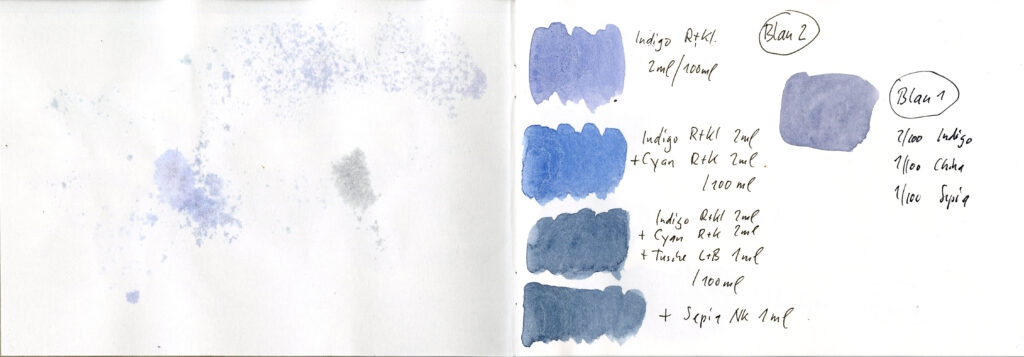 Indigo R+Kl.
2ml/100ml
Indigo R+Kl 2ml
+Cyan R+K 2ml.
/100ml
Indigo R+Kl 2ml
+ Cyan R+K 2ml
+ Tusche L+B 1ml
/100ml
+ Sepia NK 1ml
Blau 2
Blau 1
2/100 Indigo
1/100 China
1/100 Sepia